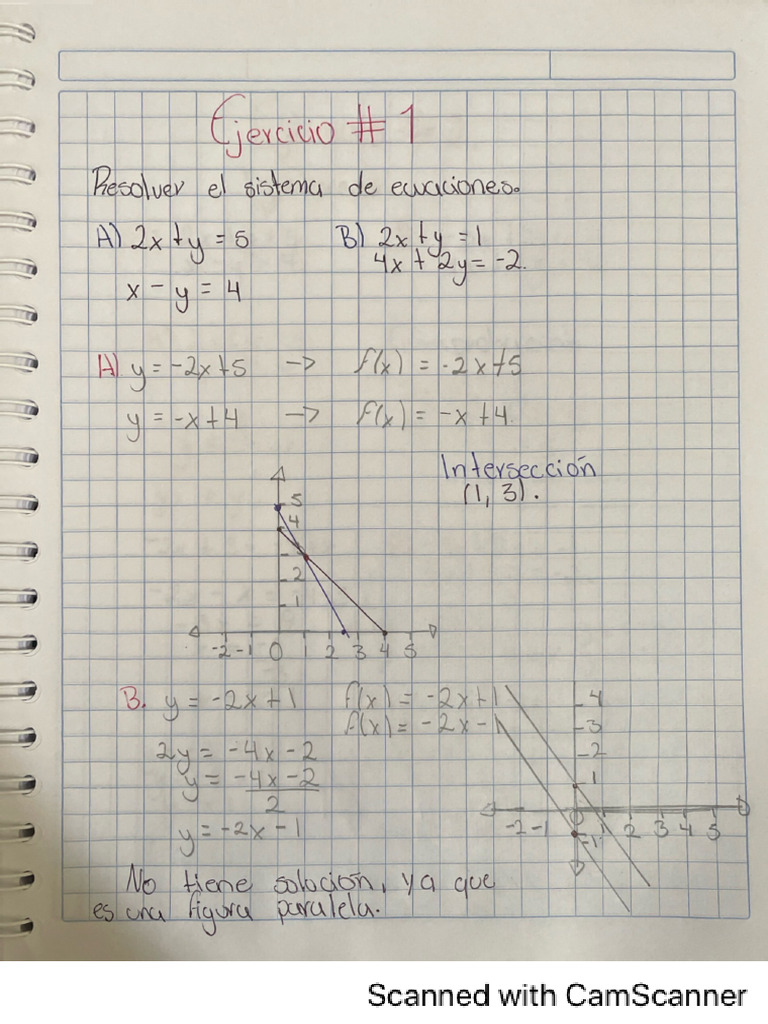 Ejercicio # 1
Resolver el sistema de ecuaciones.
A) 2x + y = 5 B) 2x + y = 1
4x + 2y = -2.
x - y = 4
A) y = -2x + 5 -> f(x) = -2x + 5
y = -x + 4 -> f(x) = -x + 4.
Intersección
(1, 3).
5
4
2
1
-2 -1 0 1 2 3 4 5
B. y = -2x + 1 f(x) = -2x + 1
f(x) = -2x - 1
2y = -4x - 2
y = -4x - 2
2
y = -2x - 1
4
3
2
1
-2 -1 0 1 2 3 4 5
-1
No tiene solocion, ya que
es una figura paralela.
Scanned with CamScanner